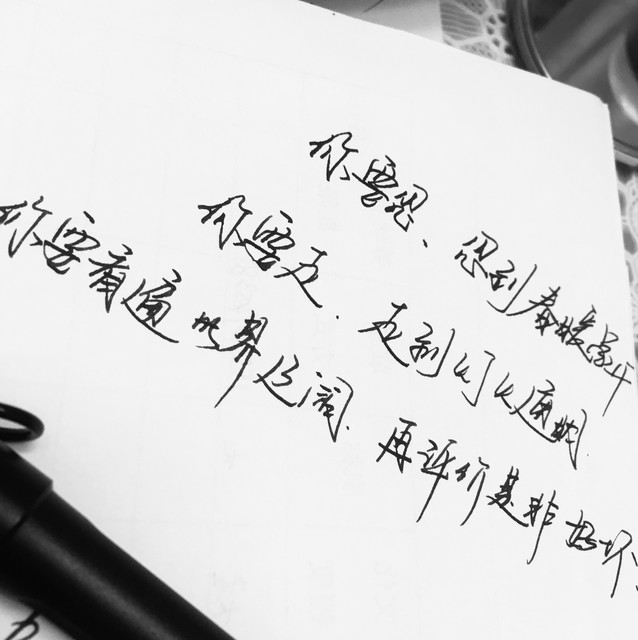 你要忍、忍到春暖花开
你要走.走到灯火通明.
你要看遍世界辽阔.再评价是非好坏.